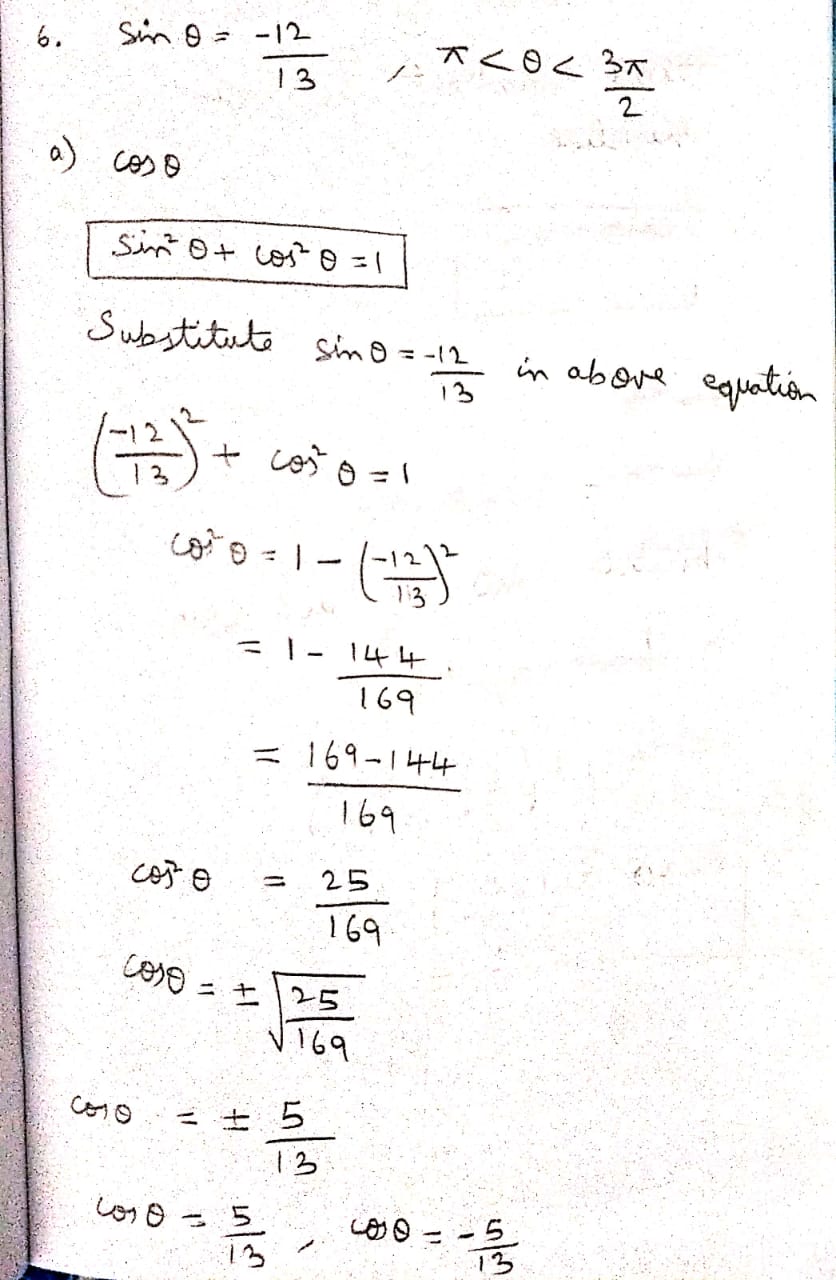 6. Sin θ = -12/13 , π < θ < 3π/2
a) cos θ
Sin² θ + cos² θ = 1
Substitute sin θ = -12/13 in above equation
(-12/13)² + cos² θ = 1
cos² θ = 1 - (-12/13)²
= 1 - 144/169
= 169-144/169
cos² θ = 25/169
cos θ = ± √25/169
cos θ = ± 5/13
cos θ = 5/13 , cos θ = -5/13